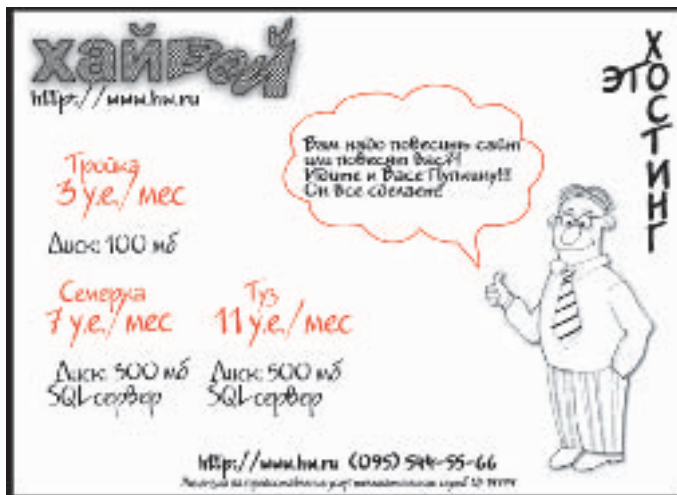 хайвей
http://www.hw.ru
ЭТО
ХОСТИНГ
Вам надо повесить сайт
или повесят Вас?!
Идите к Васе Пупкину!!!
Он все сделает!
Тройка
3 у.е./мес
Диск: 100 мб
Семерка
7 у.е./мес
Диск: 500 мб
SQL-сервер
Туз
11 у.е./мес
Диск: 500 мб
SQL-сервер
http://www.hw.ru (095) 544-55-66